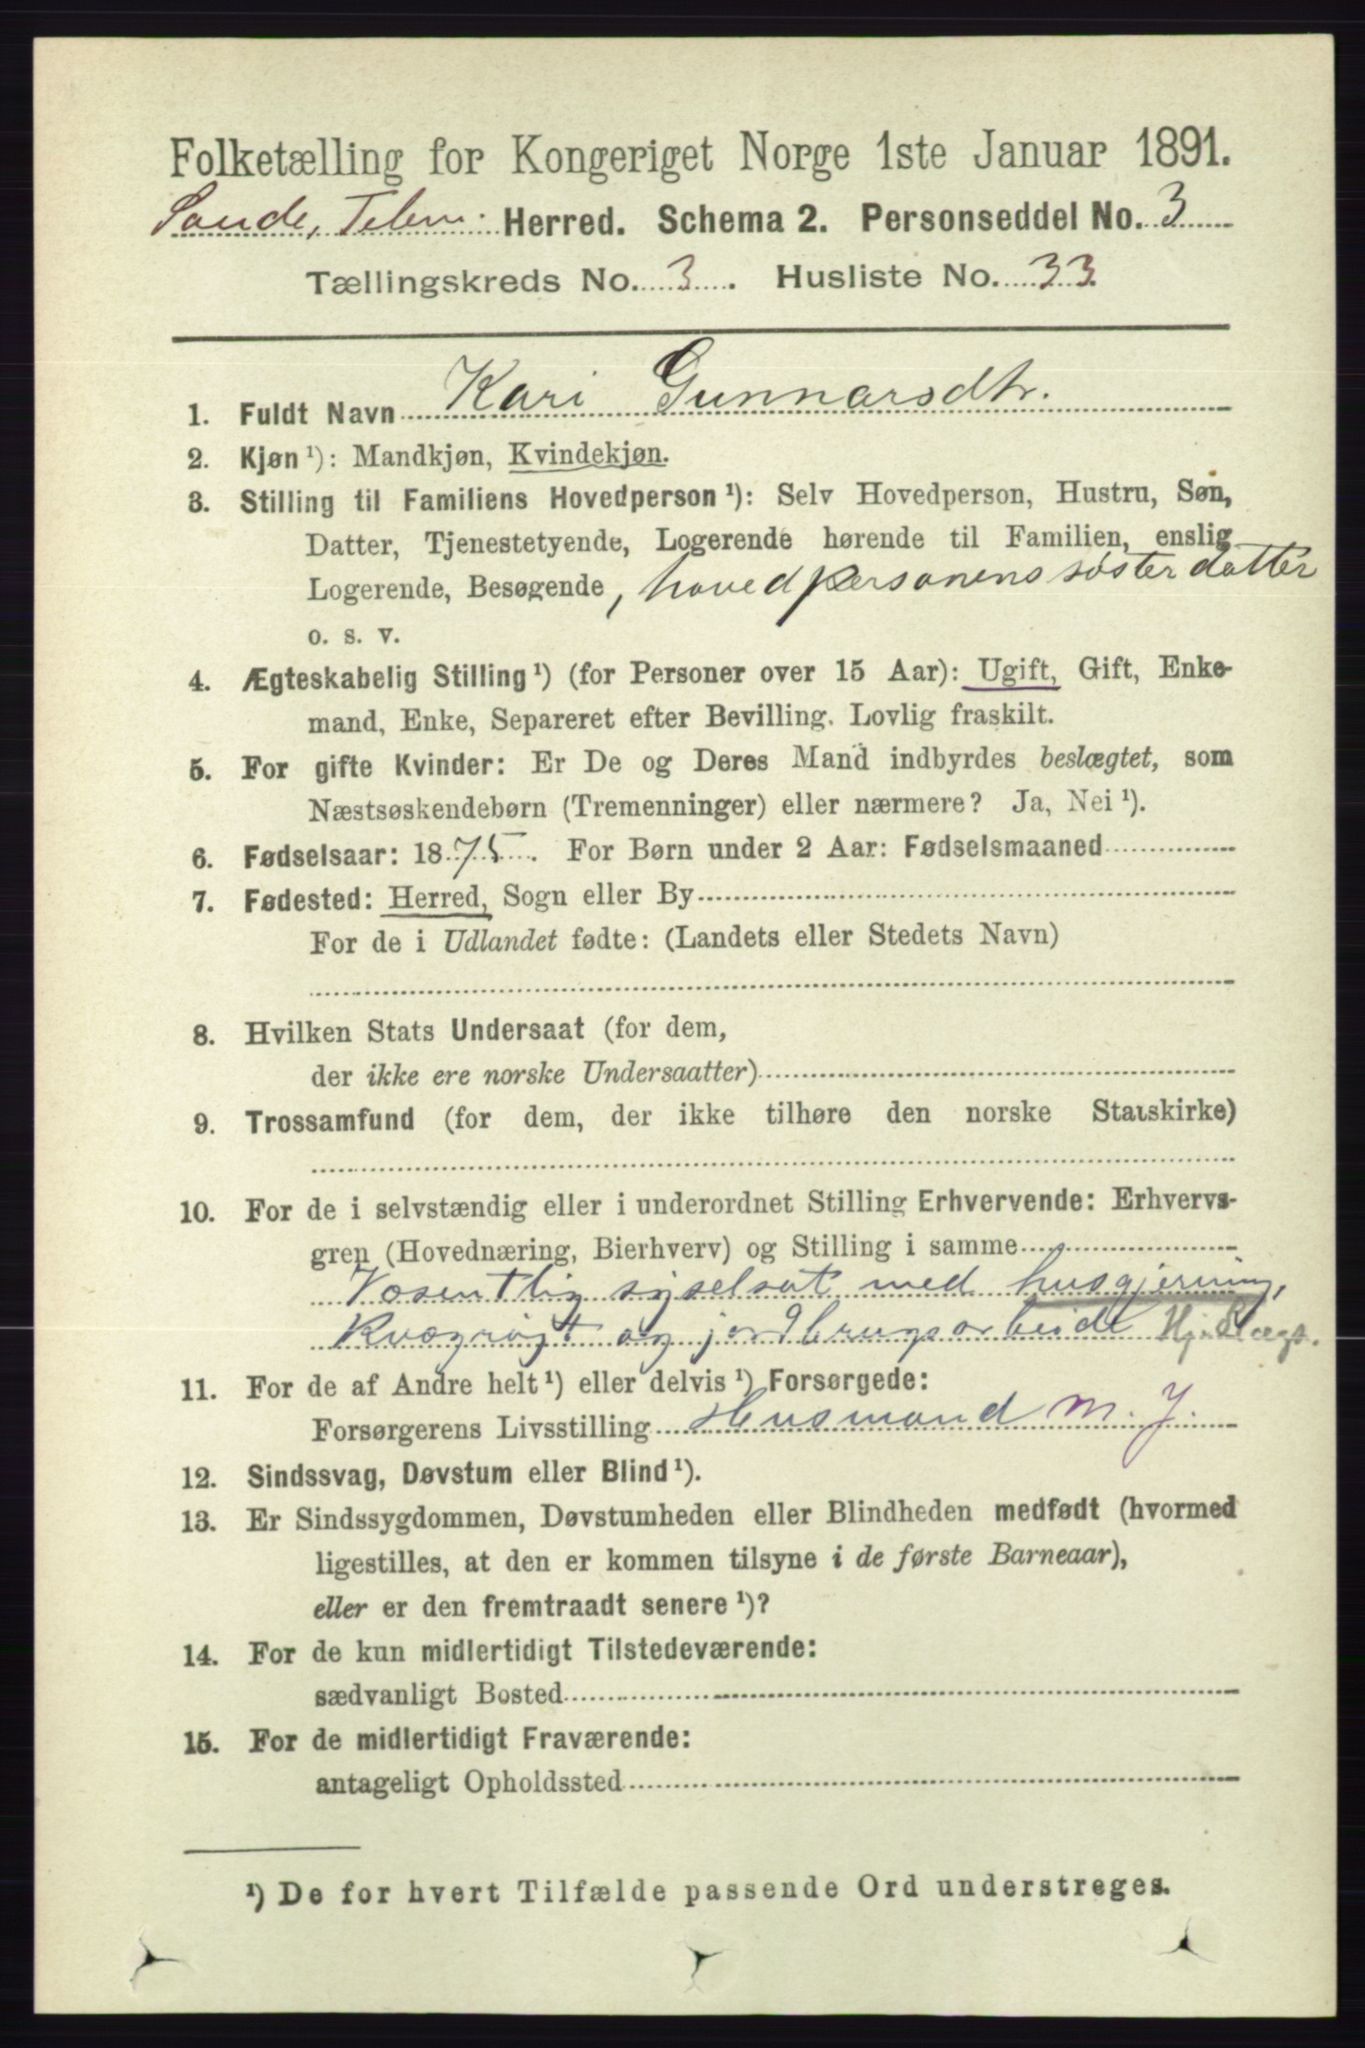 Folketælling for Kongeriget Norge 1ste Januar 1891.
Saude, Telem. Herred. Schema 2. Personseddel No. 3
Tællingskreds No. 3. Husliste No. 33.
1. Fuldt Navn Kari Gunnarsdtr.
2. Kjøn ¹): Mandkjøn, Kvindekjøn.
3. Stilling til Familiens Hovedperson ¹): Selv Hovedperson, Hustru, Søn,
Datter, Tjenestetyende, Logerende hørende til Familien, enslig
Logerende, Besøgende, hovedpersonens søster datter
o. s. v.
4. Ægteskabelig Stilling ¹) (for Personer over 15 Aar): Ugift, Gift, Enke-
mand, Enke, Separeret efter Bevilling. Lovlig fraskilt.
5. For gifte Kvinder: Er De og Deres Mand indbyrdes beslægtet, som
Næstsøskendebørn (Tremenninger) eller nærmere? Ja, Nei ¹).
6. Fødselsaar: 1875. For Børn under 2 Aar: Fødselsmaaned
7. Fødested: Herred, Sogn eller By
For de i Udlandet fødte: (Landets eller Stedets Navn)
8. Hvilken Stats Undersaat (for dem,
der ikke ere norske Undersaatter)
9. Trossamfund (for dem, der ikke tilhøre den norske Statskirke)
10. For de i selvstændig eller i underordnet Stilling Erhvervende: Erhvervs-
gren (Hovednæring, Bierhverv) og Stilling i samme
Væsentlig syselsat med husgjerning,
Kvægrøgt og jordbrugsarbeide
11. For de af Andre helt ¹) eller delvis ¹) Forsørgede:
Forsørgerens Livsstilling Husmand m. J.
12. Sindssvag, Døvstum eller Blind ¹).
13. Er Sindssygdommen, Døvstumheden eller Blindheden medfødt (hvormed
ligestilles, at den er kommen tilsyne i de første Barneaar),
eller er den fremtraadt senere ¹)?
14. For de kun midlertidigt Tilstedeværende:
sædvanligt Bosted
15. For de midlertidigt Fraværende:
antageligt Opholdssted
¹) De for hvert Tilfælde passende Ord understreges.